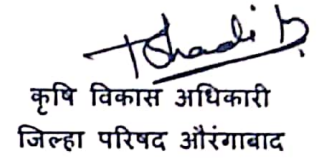 कृषि विकास अधिकारी
जिल्हा परिषद औरंगाबाद